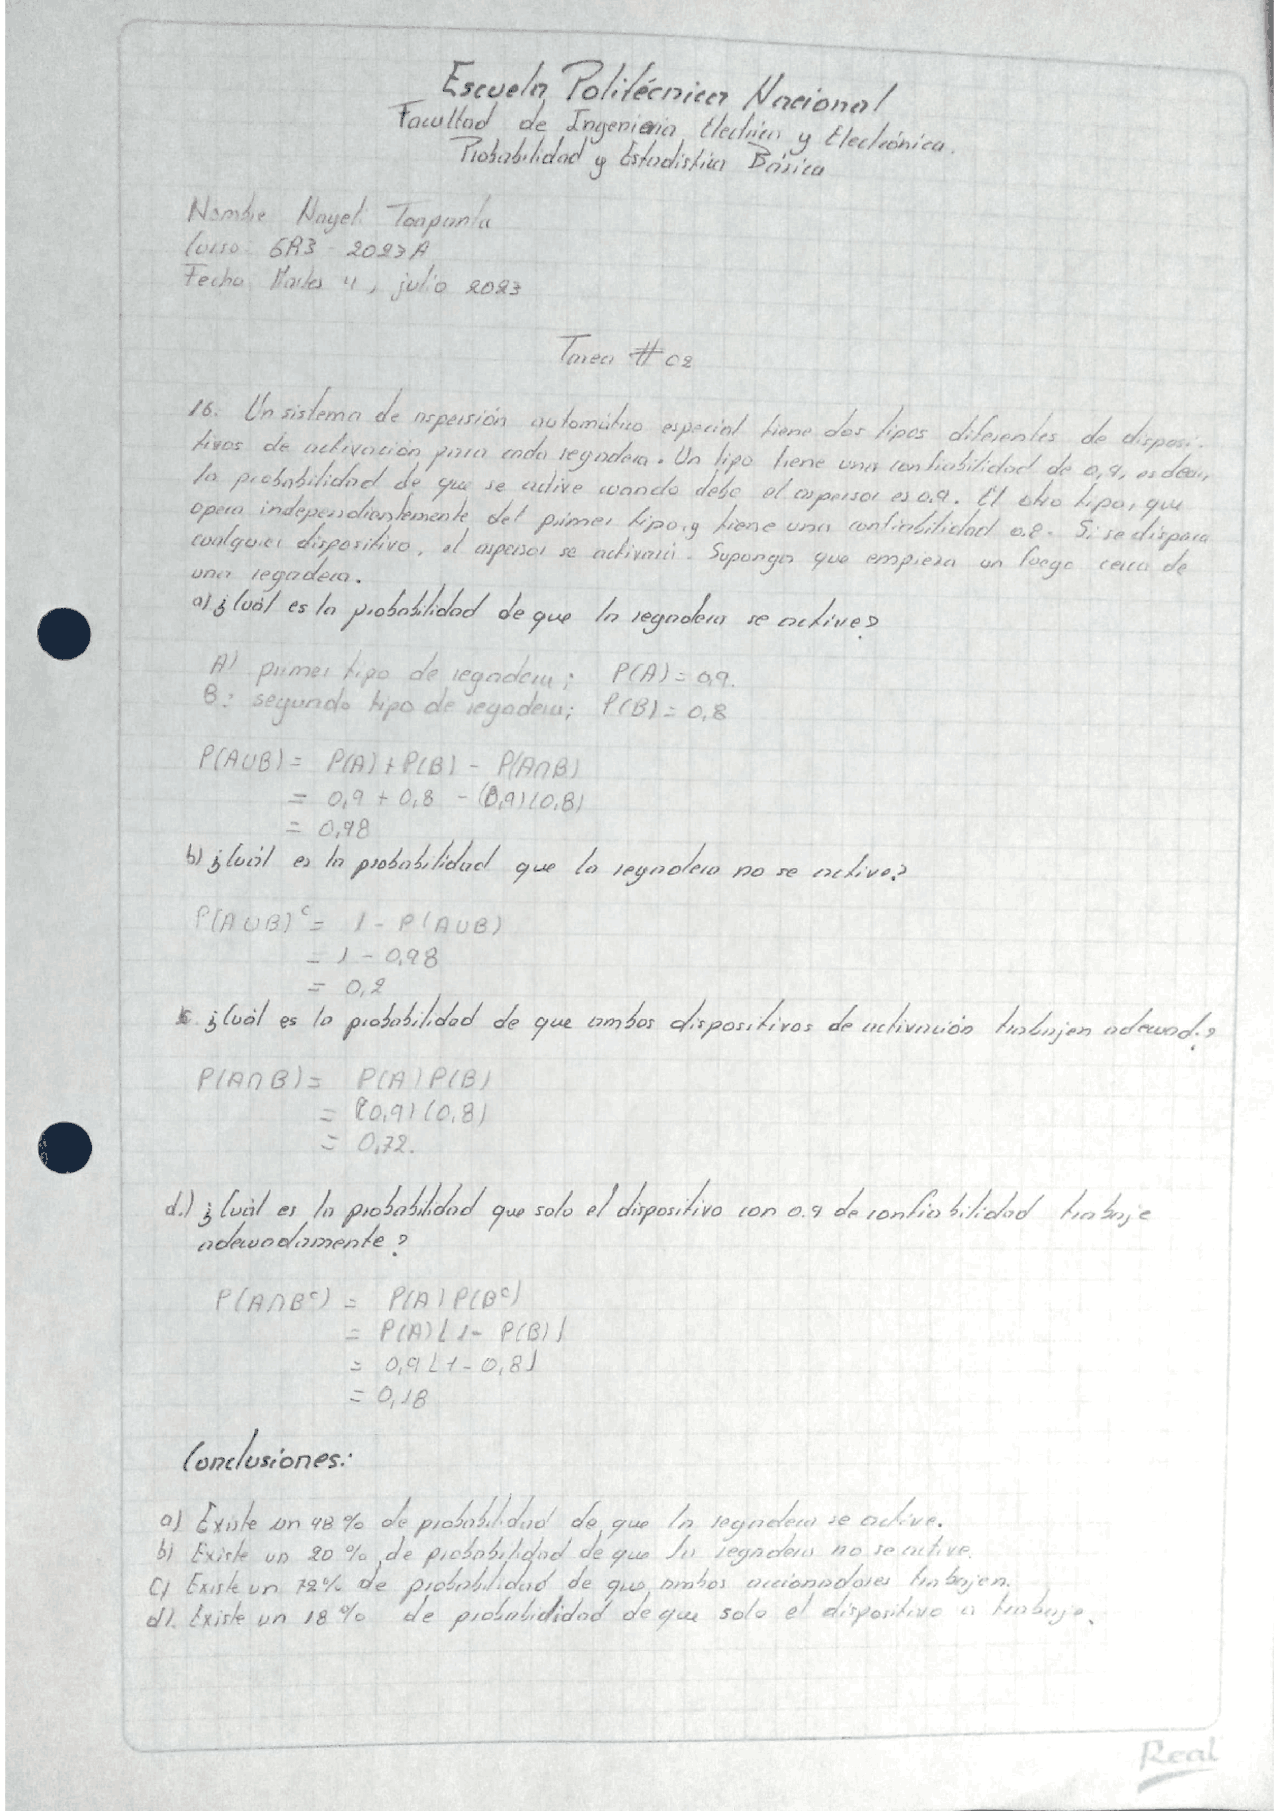 Escuela Politécnica Nacional
Facultad de Ingeniería Electrica y Electrónica.
Probabilidad y Estadística Básica
Nombre Nayeli Toapanta
Curso: GR3 - 2023A
Fecha: Martes 4, julio 2023
Tarea #02
16. Un sistema de aspersión automático especial tiene dos tipos diferentes de disposi-
tivos de activación para cada regadera. Un tipo tiene una confiabilidad de 0,9, es decir,
la probabilidad de que se active cuando debe el aspersor es 0.9. El otro tipo, que
opera independientemente del primer tipo, y tiene una confiabilidad 0.8. Si se dispara
cualquier dispositivo, el aspersor se activará. Suponga que empieza un fuego cerca de
una regadera.
a) ¿Cuál es la probabilidad de que la regadera se active?
A) primer tipo de regadera; P(A) = 0,9.
B: segundo tipo de regadera; P(B) = 0,8
P(A∪B) = P(A) + P(B) - P(A∩B)
= 0,9 + 0,8 - (0,9)(0,8)
= 0,98
b) ¿Cuál es la probabilidad que la regadera no se active?
P(A∪B)ᶜ = 1 - P(A∪B)
= 1 - 0,98
= 0,2
c. ¿Cuál es la probabilidad de que ambos dispositivos de activación trabajen adecuad.?
P(A∩B) = P(A)P(B)
= (0,9)(0,8)
= 0,72.
d.) ¿Cuál es la probabilidad que solo el dispositivo con 0.9 de confiabilidad trabaje
adecuadamente?
P(A∩Bᶜ) = P(A)P(Bᶜ)
= P(A)[1 - P(B)]
= 0,9[1 - 0,8]
= 0,18
Conclusiones:
a) Existe un 98% de probabilidad de que la regadera se active.
b) Existe un 20% de probabilidad de que la regadera no se active.
c) Existe un 72% de probabilidad de que ambos accionadores trabajen.
d). Existe un 18% de probabilidad de que solo el dispositivo a trabaje.
Real